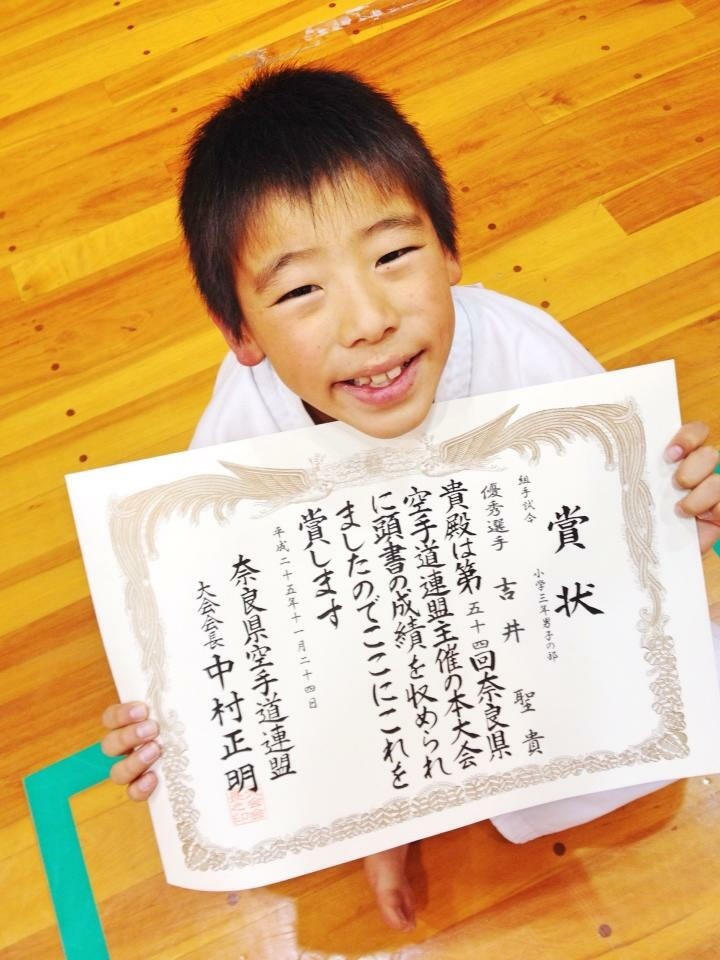 賞状
小学三年男子の部
組手試合
優秀選手 吉井聖貴
貴殿は第五十四回奈良県
空手道連盟主催の本大会
に頭書の成績を収められ
ましたのでここにこれを
賞します
平成二十五年十一月二十四日
奈良県空手道連盟
大会会長 中村正明